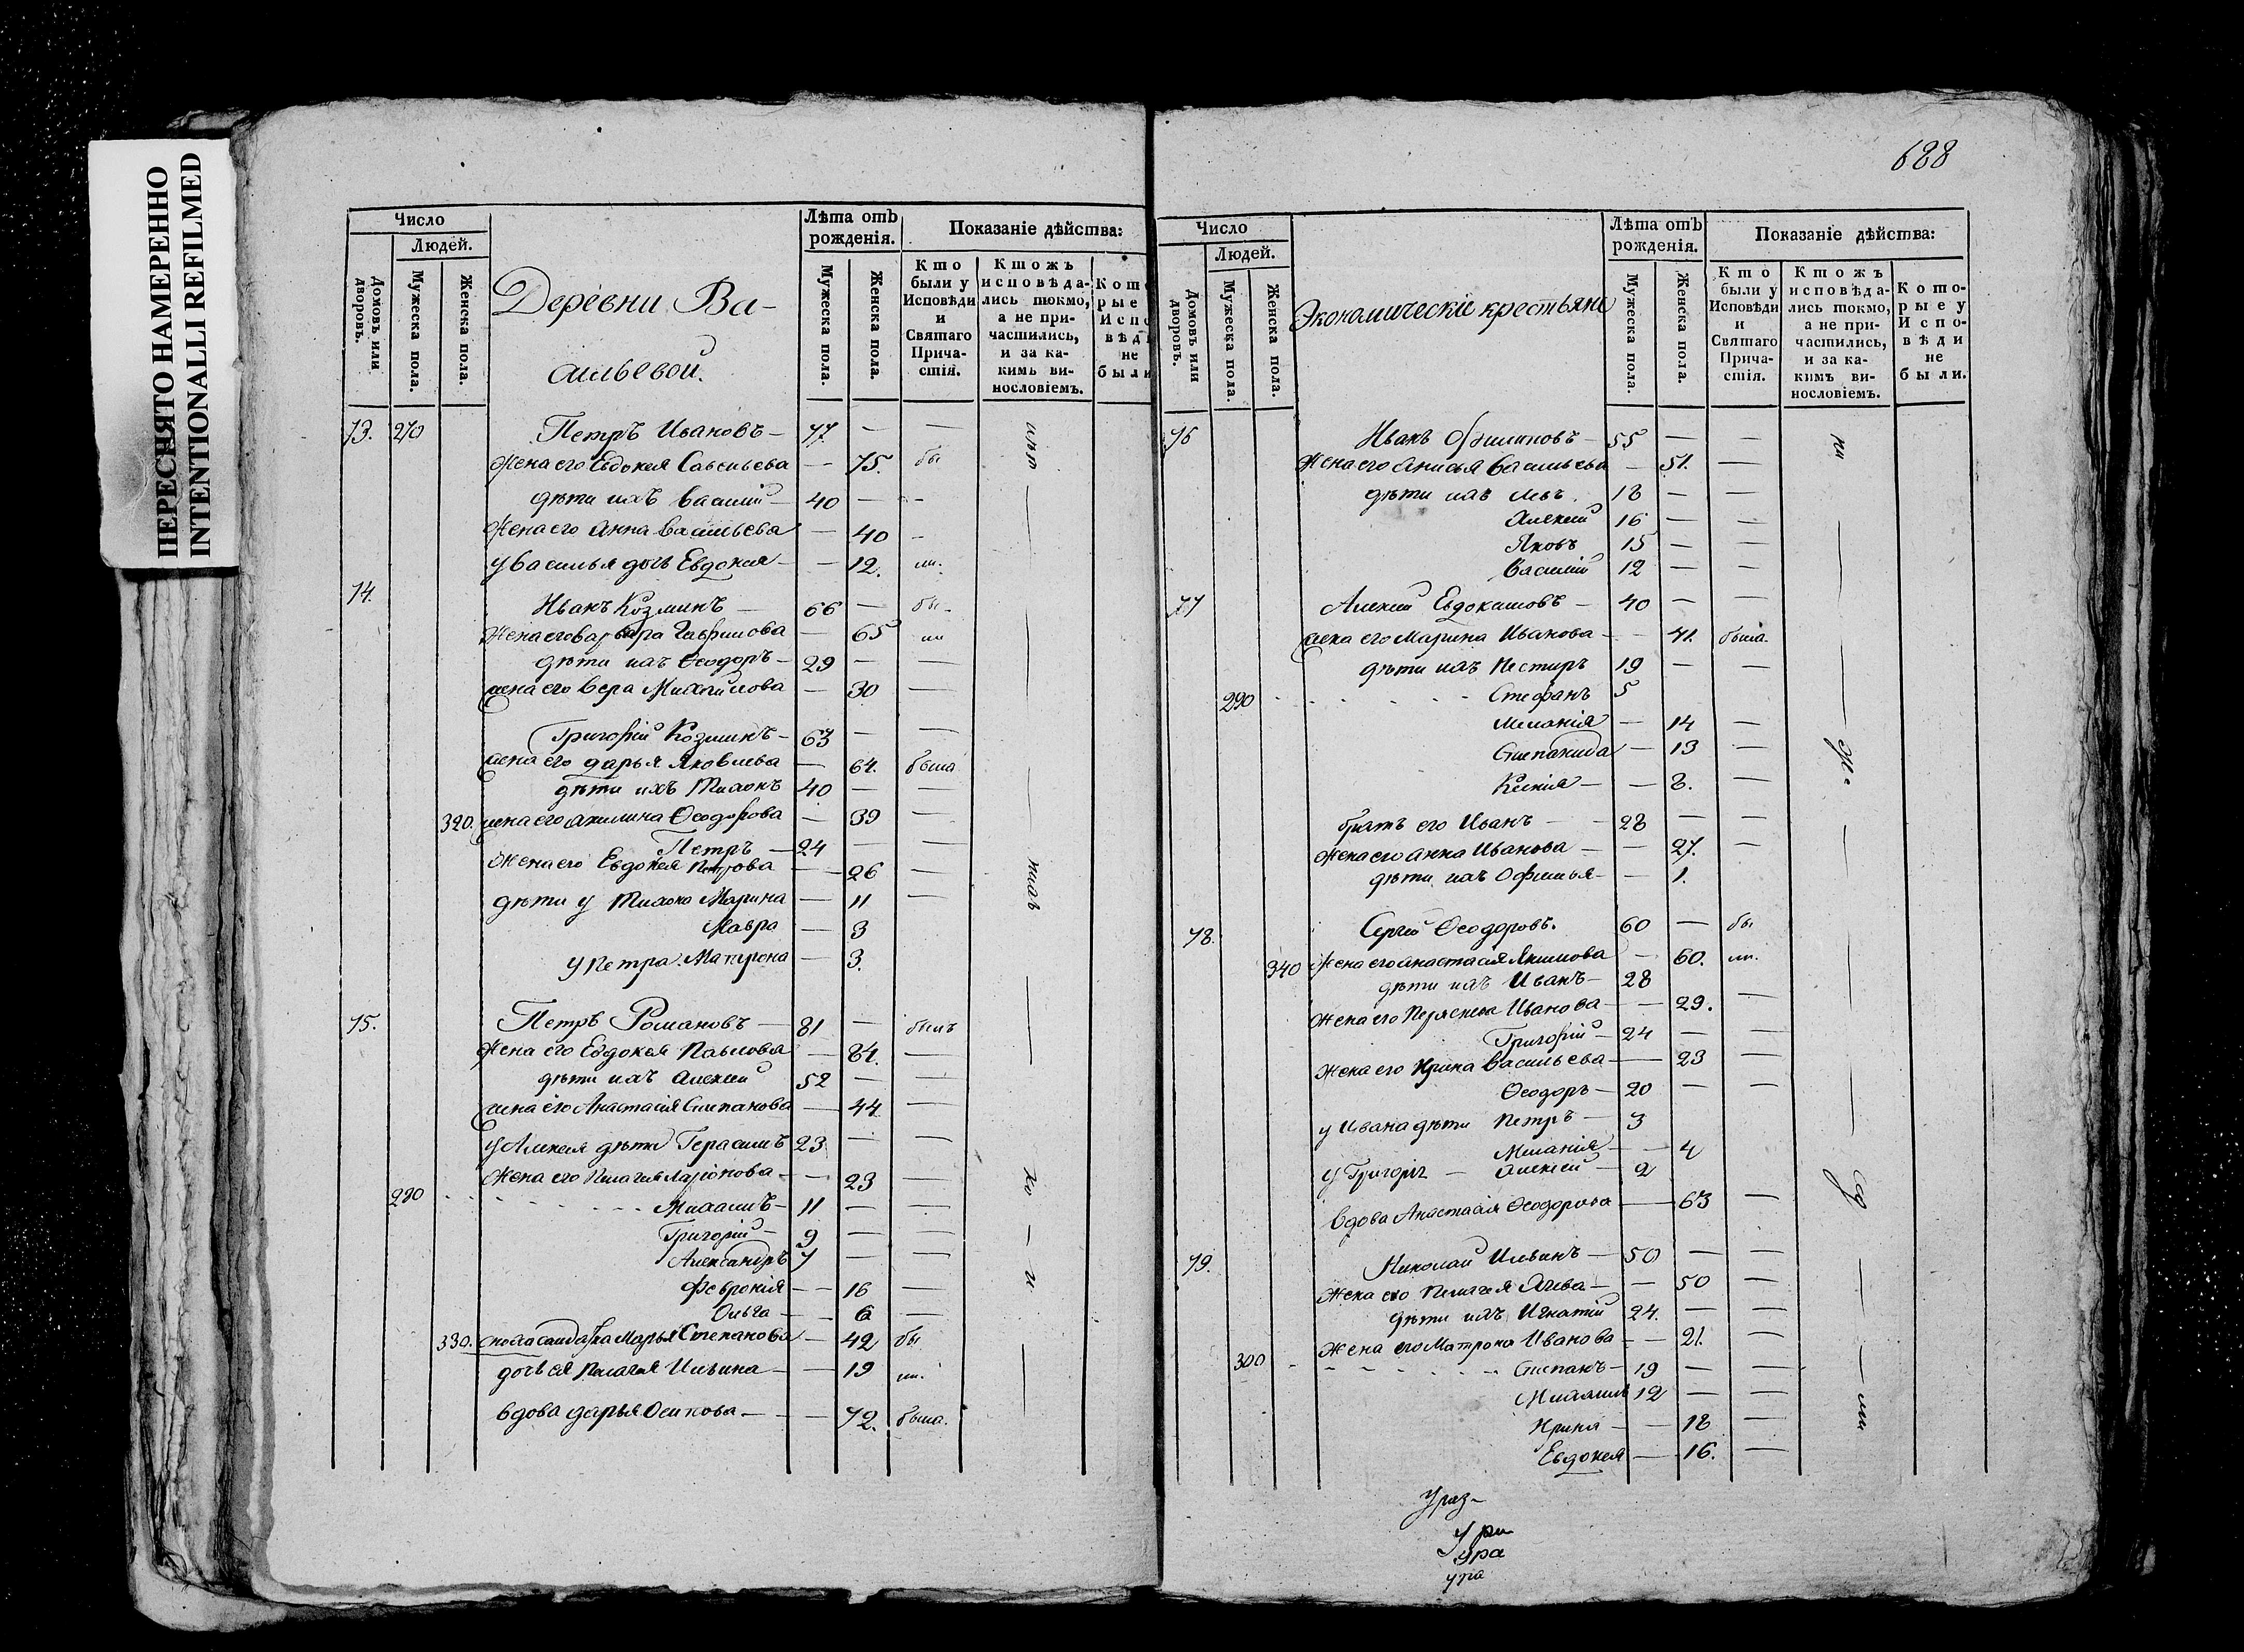 ПЕРЕСНЯТО НАМЕРЕННО
INTENTIONALLI REFILMED
Число
Людей.
Домовъ или дворовъ.
Мужеска пола.
Женска пола.
Деревни Ва-
сильевой.
Лѣта отъ рожденія.
Мужеска пола.
Женска пола.
Показаніе дѣйства:
Кто были у Исповѣди и Святаго Прича-стія.
Ктожъ исповѣда-лись токмо, а не при-частились, и за ка-кимъ ви-нословіемъ.
13. 270 Петръ Ивановъ — 77 — —
Жена его Евдокея Савельева — 75. бы
дѣти ихъ Василій — 40 — —
Жена его Анна Васильева — 40 -
у Василья дочь Евдокия — — 12. ли.
14. Иванъ Козминъ — 66 — бы-
Жена его Варвара Гаврилова — 65 ли
дѣти ихъ Ѳеодоръ — 29 — —
жена его Вера Михайлова — 30 —
Григорій Козминъ — 63 — —
жена его Дарья Яковлева — 64. была
дѣти ихъ Тихонъ 40 — —
320. жена его Акилина Ѳеодорова — 39 —
Петръ — 24 — —
Жена его Евдокея Петрова — 26 —
дѣти у Тихона Марина — 11 —
Мавра — 3
у Петра Матрона — 3.
15. Петръ Романовъ — 81 — былъ
Жена его Евдокея Павлова — 81. —
дѣти ихъ Алексей 52 — —
жена его Анастасія Степанова — 44 —
у Алексея дѣти Герасимъ 23 — —
Жена его Пелагея Ларіонова — — 23 —
280 Михаилъ — 11 — —
Григорій — 9 — —
Александръ 7 — —
Феврония — — 16 —
Ольга — 6 —
330. сноха солдатка Марья Степанова — 42 бы
дочь ея Пелагея Ильина — — 19 ли.
вдова Дарья Осипова — — 72. была.
688
Число
Людей.
Домовъ или дворовъ.
Мужеска пола.
Женска пола.
Экономическіе крестьяне
Лѣта отъ рожденія.
Мужеска пола.
Женска пола.
Показаніе дѣйства:
Кто были у Исповѣди и Святаго Прича-стія.
Ктожъ исповѣда-лись токмо, а не при-частились, и за ка-кимъ ви-нословіемъ.
Кото-рые у Испо-вѣди не были.
16 Иванъ Филиповъ — 55 — —
Жена его Анисья Васильева — 51. —
дѣти ихъ Левъ. 18 — —
Алексей 16 — —
Яковъ 15 — —
Василій 12 — —
17 Алексей Евдокимовъ — 40 — —
жена его Марина Иванова — — 41. была.
дѣти ихъ Нестиръ 19 — —
290 Стефанъ 5
Меланія — 14 —
Степанида — 13 —
Ксения — — 8. —
братъ его Иванъ — — 28 — —
Жена его Анна Иванова — — 27. —
дѣти ихъ Офимья — — 1.
18. Сергей Ѳеодоровъ. 60 — бы
340 Жена его Анастасія Якимова — 60. ли.
дѣти ихъ Иванъ — 28
Жена его Иванова — — 29. —
Григорій — 24 — —
Жена его Ирина Васильева — 23 —
Ѳеодоръ — 20 — —
у Ивана дѣти Петръ — 3
Меланія — — 4
у Григорія — Алексей — 2
вдова Анастасія Ѳеодорова — 63 —
19. Николай Ильинъ — 50 — —
Жена его Пелагея — — 50 —
дѣти ихъ Игнатій 24. — —
Жена его Матрона Иванова — — 21. —
300 Степанъ — 19 — —
Михаилъ 12 — —
Ирина — — 18 —
Евдокея — 16. —
Ураз-
Ури
Ура
ура